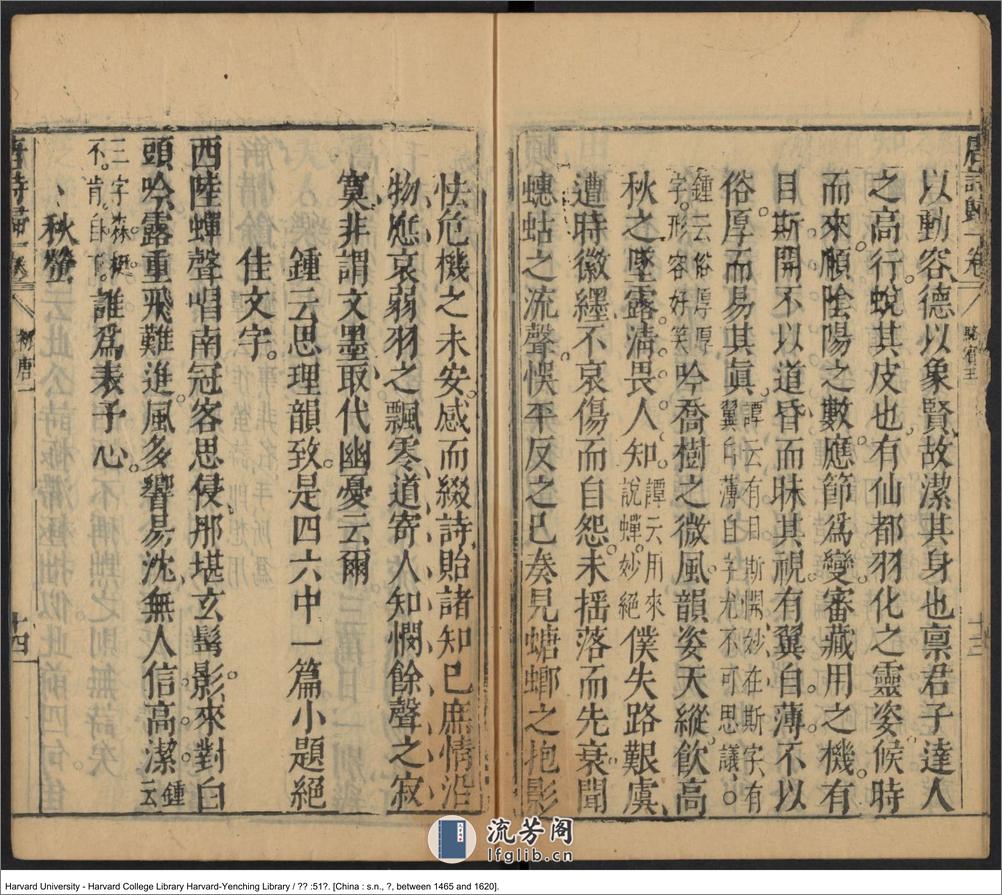 唐詩歸一卷 駱賓王 十三
以動容德以象賢故潔其身也稟君子達人
之高行蛻其皮也有仙都羽化之靈姿候時
而來順陰陽之數應節爲變審藏用之機有
目斯開不以道昏而昧其視有翼自薄不以
俗厚而易其眞譚云有目斯開妙在斯字有翼自薄自字尤不可思議
鍾云俗厚厚字形容好笑吟喬樹之微風韻姿天縱飲高
秋之墜露清畏人知譚云用來說蟬妙絕僕失路艱虞
遭時徽纆不哀傷而自怨未揺落而先衰聞
蟪蛄之流聲悞平反之已奏見螗螂之抱影
怯危機之未安感而綴詩貽諸知已庶情沿
物應哀弱羽之飄零道寄人知憫餘聲之寂
寞非謂文墨取代幽憂云爾
鍾云思理韻致是四六中一篇小題絕
佳文字
西陸蟬聲唱南冠客思侵那堪玄鬂影來對白
頭吟露重飛難進風多響易沈無人信高潔鍾云
三字森挺不肯自誰爲表予心
秋螢
唐詩歸一卷 初唐一 十四
流芳阁
lfglib.cn
Harvard University - Harvard College Library Harvard-Yenching Library / ?? :51?. [China : s.n., ?, between 1465 and 1620].